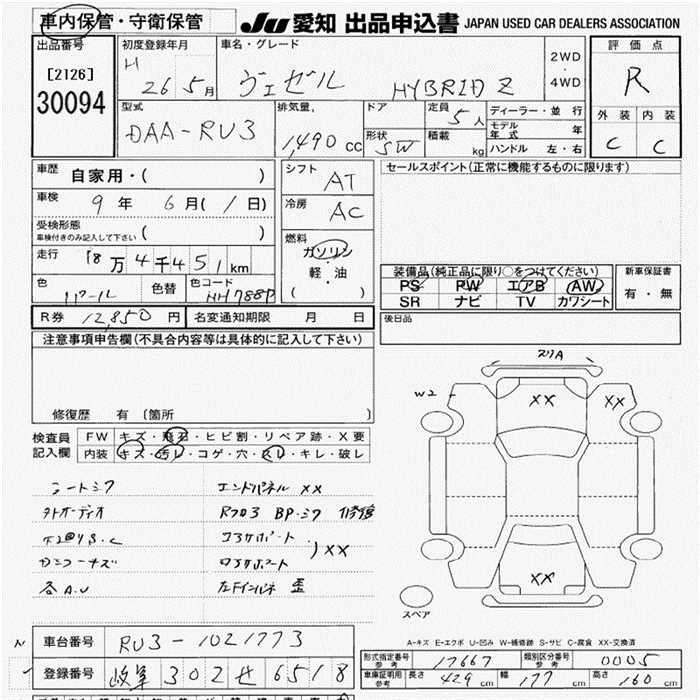 車内保管・守衛保管
JU 愛知 出品申込書 JAPAN USED CAR DEALERS ASSOCIATION
出品番号 初度登録年月 車名・グレード 2WD・4WD 評価点
[2126]
30094
H 26 5月 ヴェゼル HYBRID Z R
型式 排気量 ドア 定員 5人 ディーラー・並行 外装 内装
DAA-RU3 1,490 cc 形状 SW 積載 kg モデル年式 年 C C
ハンドル 左・右
車歴 自家用・( ) シフト AT セールスポイント(正常に機能するものに限ります)
車検 9年 6月(1日) 冷房 AC
受検形態 ( )
車検付きのみ記入して下さい
燃料
走行 18万4千451km ガソリン・軽・油 ( )
装備品(純正品に限り○をつけてください) 新車保証書
PS PW エアB AW 有・無
SR ナビ TV カワシート
色 パール 色替 色コード NH788P
R券 12,850円 名変通知期限 月 日 後日品
注意事項申告欄(不具合内容等は具体的に記入して下さい)
修復歴 有〔箇所 〕
検査員記入欄 FW キズ・飛石・ヒビ割・リペア跡・X要
内装 キズ・汚レ・コゲ・穴・スレ・キレ・破レ
W2 XX XX
XX
シートシワ エンドパネル XX
外オーディオ Rフロア BP・シワ 修復
コアサポート
ロアサポート )XX
各A.U 左Fインパネ 歪
スペア
A-キズ E-エクボ U-凹み W-補修跡 S-サビ C-腐食 XX-交換済
車台番号 RU3-1021773
登録番号 岐阜 302 せ 6518
型式指定番号 参考 17667 類別区分番号 参考 0005
車庫証明用 参考 長さ 429cm 幅 177cm 高さ 160cm